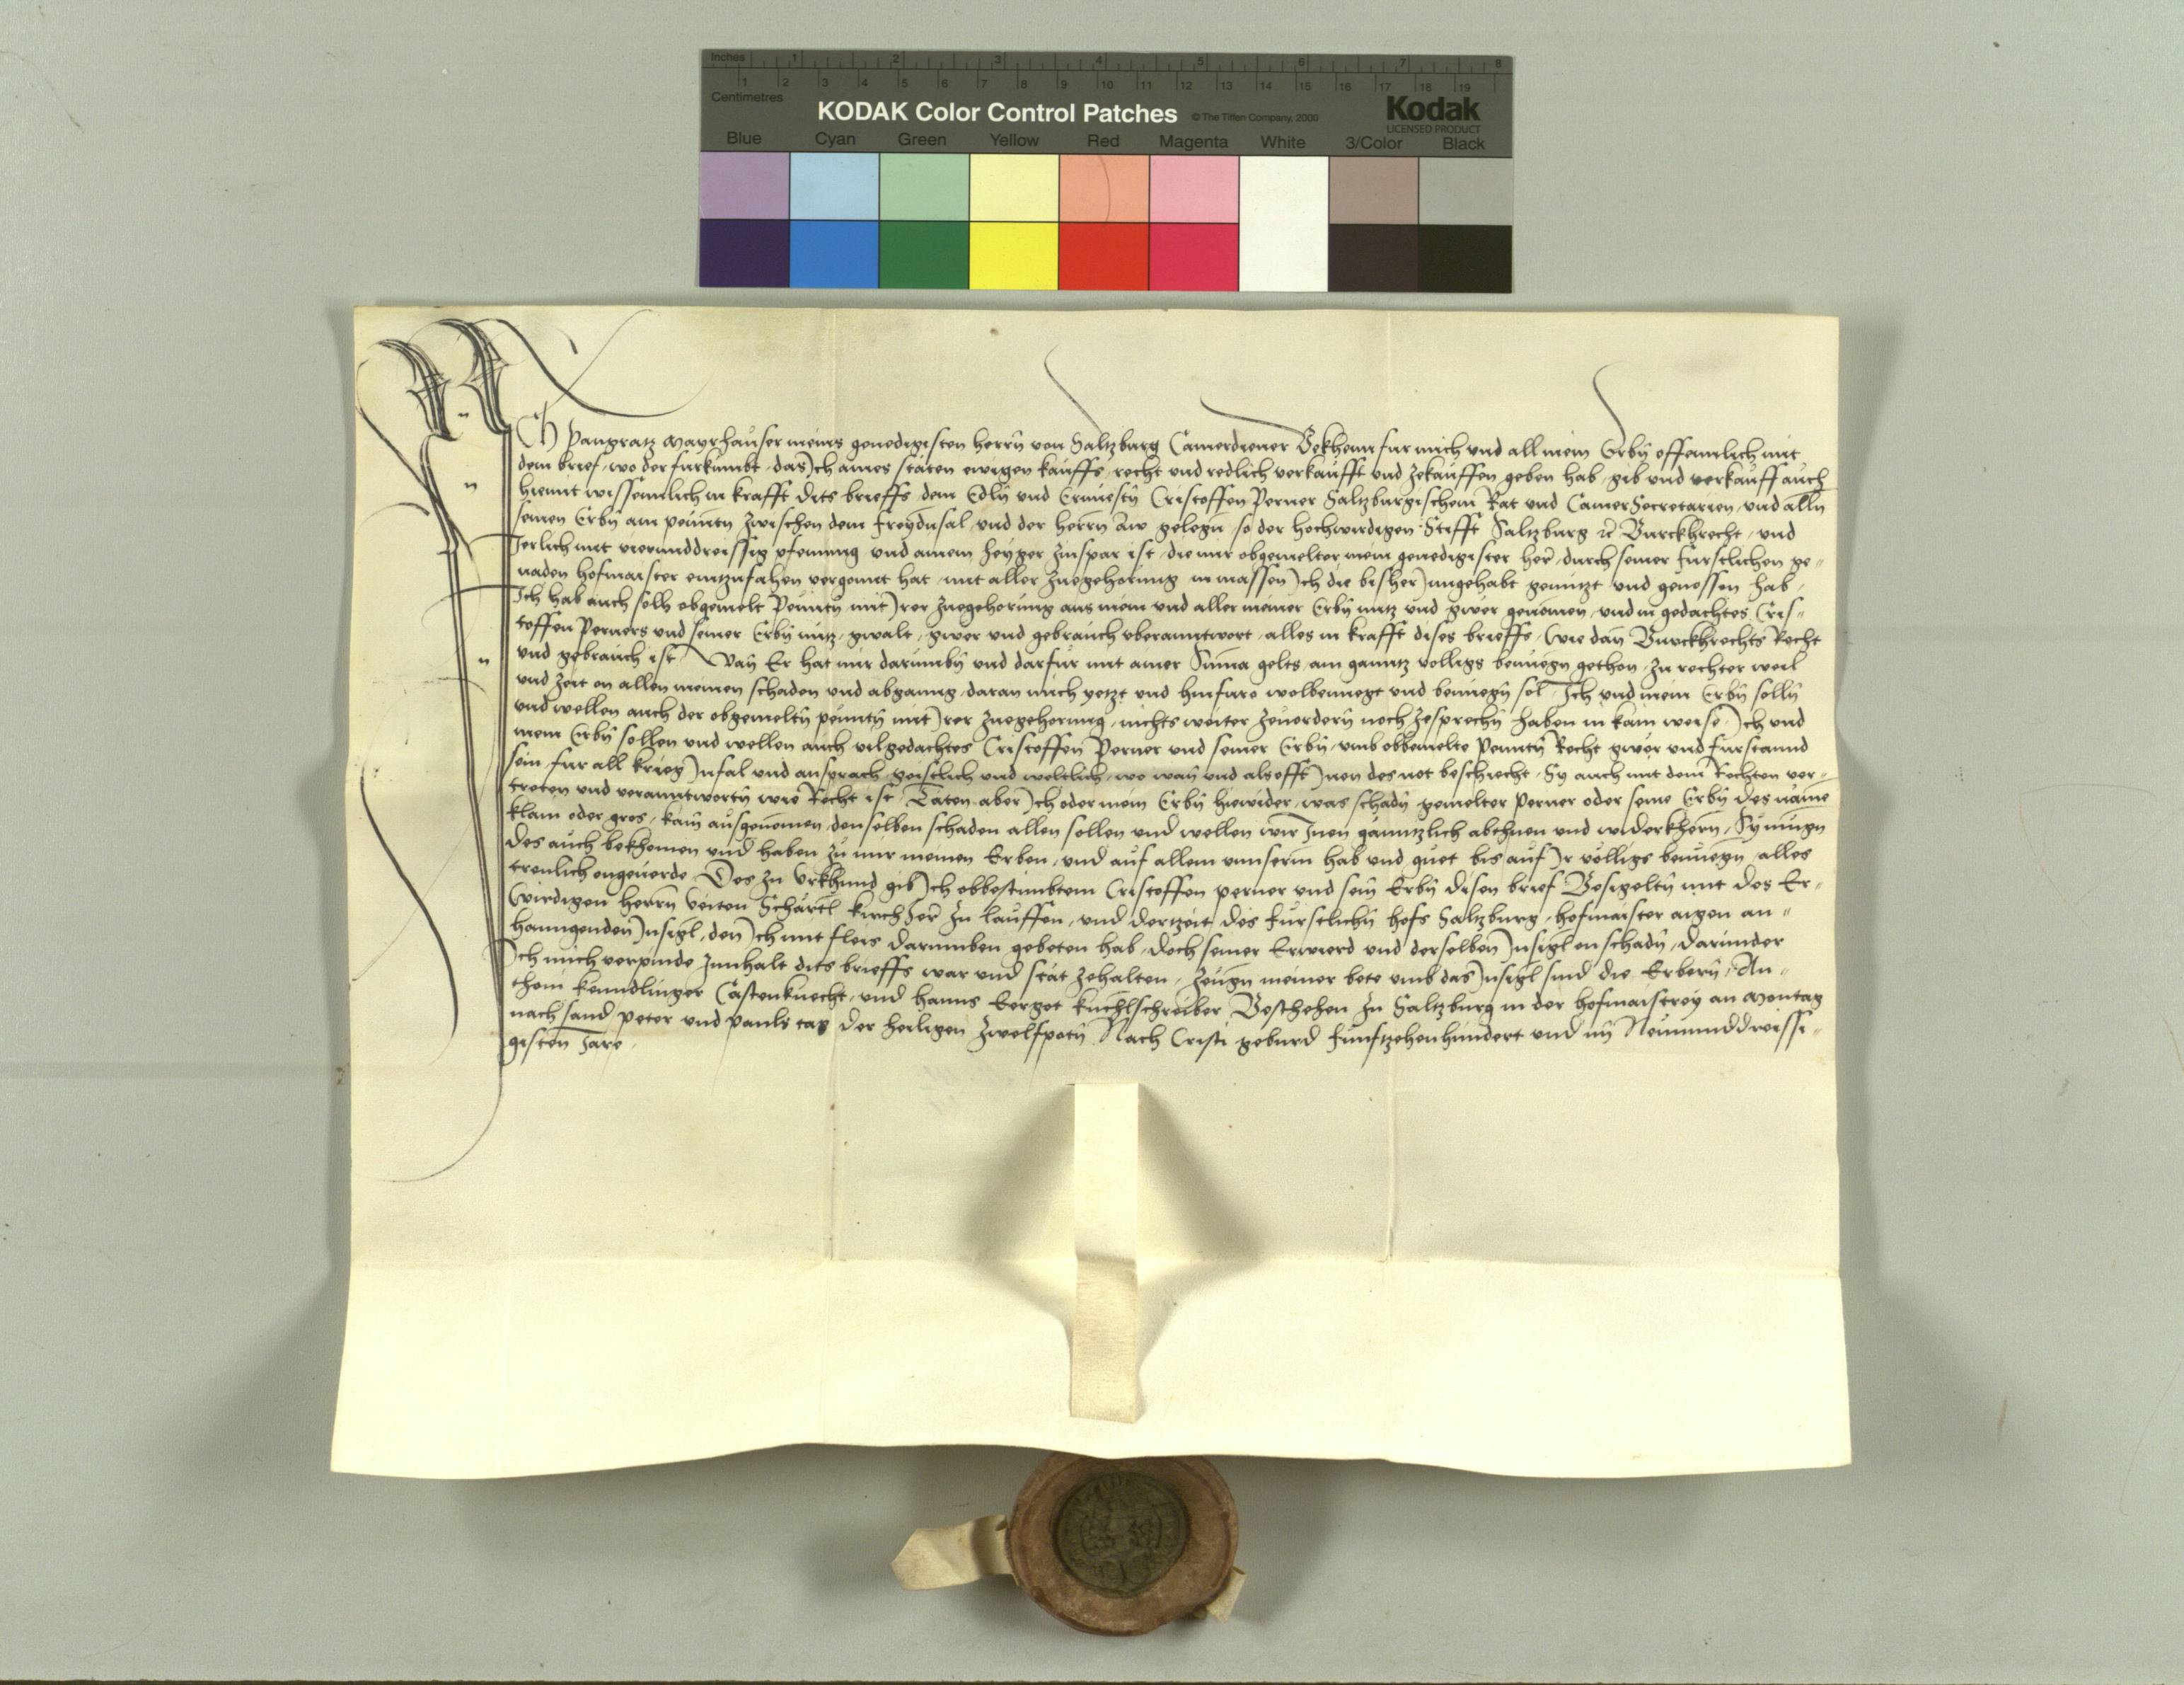 Inches 1 2 3 4 5 6 7 8
1 2 3 4 5 6 7 8 9 10 11 12 13 14 15 16 17 18 19
Centimetres
KODAK Color Control Patches © The Tiffen Company, 2000 Kodak
LICENSED PRODUCT
Blue Cyan Green Yellow Red Magenta White 3/Color Black
Ich Pangratz Mayrhauser meins genedigisten herrn von Saltzburg Camerdiener Bekhenn fur mich und all mein Erbn offennlich mit
dem brief, wo der furkumbt, das Ich aines stäten ewigen kauffs, recht und redlich verkaufft und zekauffen geben hab, gib und verkauff auch
hiemit wissenntlich in krafft dits brieffs, dem Edln und Ernuestn Cristoffen Perner Saltzburgischem Rat und CamerSecretarien, und alln
seinen Erbn ain peuntn zwischen dem Freydnsal, und der herrn Aw gelegn so der hochwirdigen Stifft Saltzburg rc Burckhrecht, und
Jerlich mit vierunddreissig pfenning und ainem Zeyger zinspar ist, die mir obgemelter mein genedigister her, durch seiner furstlichen ge„
naden hofmaister eintzufahen vergonnt hat, mit aller Zuegehorung inmassen Ich die bisher Inngehabt genutzt und genossen hab,
Ich hab auch solh obgemelt Peuntn mit Irer Zuegehorung aus mein und aller meiner Erbn nutz und gwer genomen, und in gedachtes Cris„
toffen Perners und seiner Erbn nutz, gwalt, gwer und gebrauch uberanntwort, alles in krafft dises brieffs, wie dan Burckhrechts Recht
und gebrauch ist, Wan Er hat mir darumbn und darfur mit ainer Suma gelts, ain ganntz volligs benuegn gethon, zu rechter weil
und zeit on allen meinen schaden und abganng, daran mich yetzt und hinfuro wolbenuegt und benuegn sol, Ich und mein Erbn solln
und wellen auch der obgemeltn peuntn mit Irer Zuegehorung, nichts weiter zeuordern noch zesprechn haben in kain weise, Ich und
mein Erbn sollen und wellen auch vilgedachtes Cristoffen Perner und seiner Erbn, umb obbemelte Peuntn Recht gwer und furstannd
sein fur all krieg Infal und ansprach, geistlich und weltlich, wo wan und als offt Inen des not beschiecht, Sy auch mit dem Rechten ver„
treten und veranntwortn wie Recht ist, Täten aber Ich oder mein Erbn hiewider, was schadn gemelter Perner oder seine Erbn des näme
klain oder gros, kain ausgenomen, denselben schaden allen sollen und wellen wir Inen gänntzlich abthuen und widerkhern, Sy mugn
des auch bekhomen und haben zu mir meinen Erben, und auf allem unnserm hab und guet bis auf Ir volligs benuegn, alles
treulich ongeuerde, Des zu Urkhund gib Ich obbestimbtem Cristoffen perner und sein Erbn disen brief Besigeltn mit des Er„
wirdigen herrn Veiten Schärtl kirchher zu lauffen, und derzeit des furstlichn hofs Saltzburg, hofmaister aigen an„
hanngenden Insigl, den Ich mit fleis darumben gebeten hab, doch seiner Erwierd und derselben Insigl on schadn, darunder
Ich mich verpinde Innhalt dits brieffs war und stät zehalten, Zeugn meiner bete umb das Insigl sind die Erbern, An„
thoni Kenndlinger Castenknecht, und hanns kuchlschreiber Beschehen zu Saltzburg in der hofmaistrey an Montag
nach sand peter und pauls tag der heiligen zwelfpotn Nach Cristi geburd Funfzehenhundert und im Neununddreissi„
gisten Jare